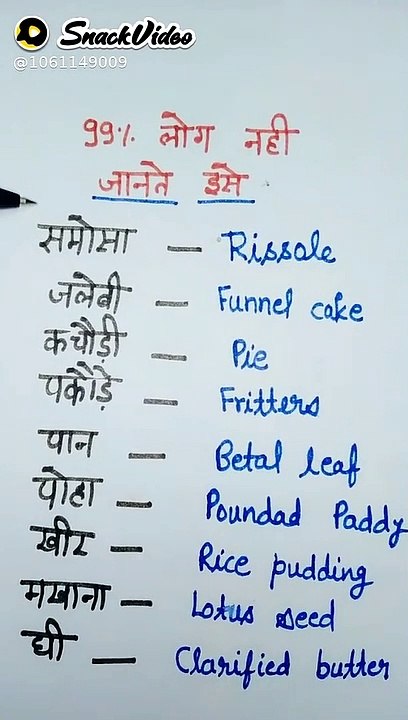 SnackVideo
@1061149009
99% लोग नही
जानते इसे
समोसा — Rissole
जलेबी — Funnel cake
कचौड़ी — Pie
पकौड़े — Fritters
पान — Betal leaf
पोहा — Poundad Paddy
खीर — Rice pudding
मखाना — Lotus seed
घी — Clarified butter